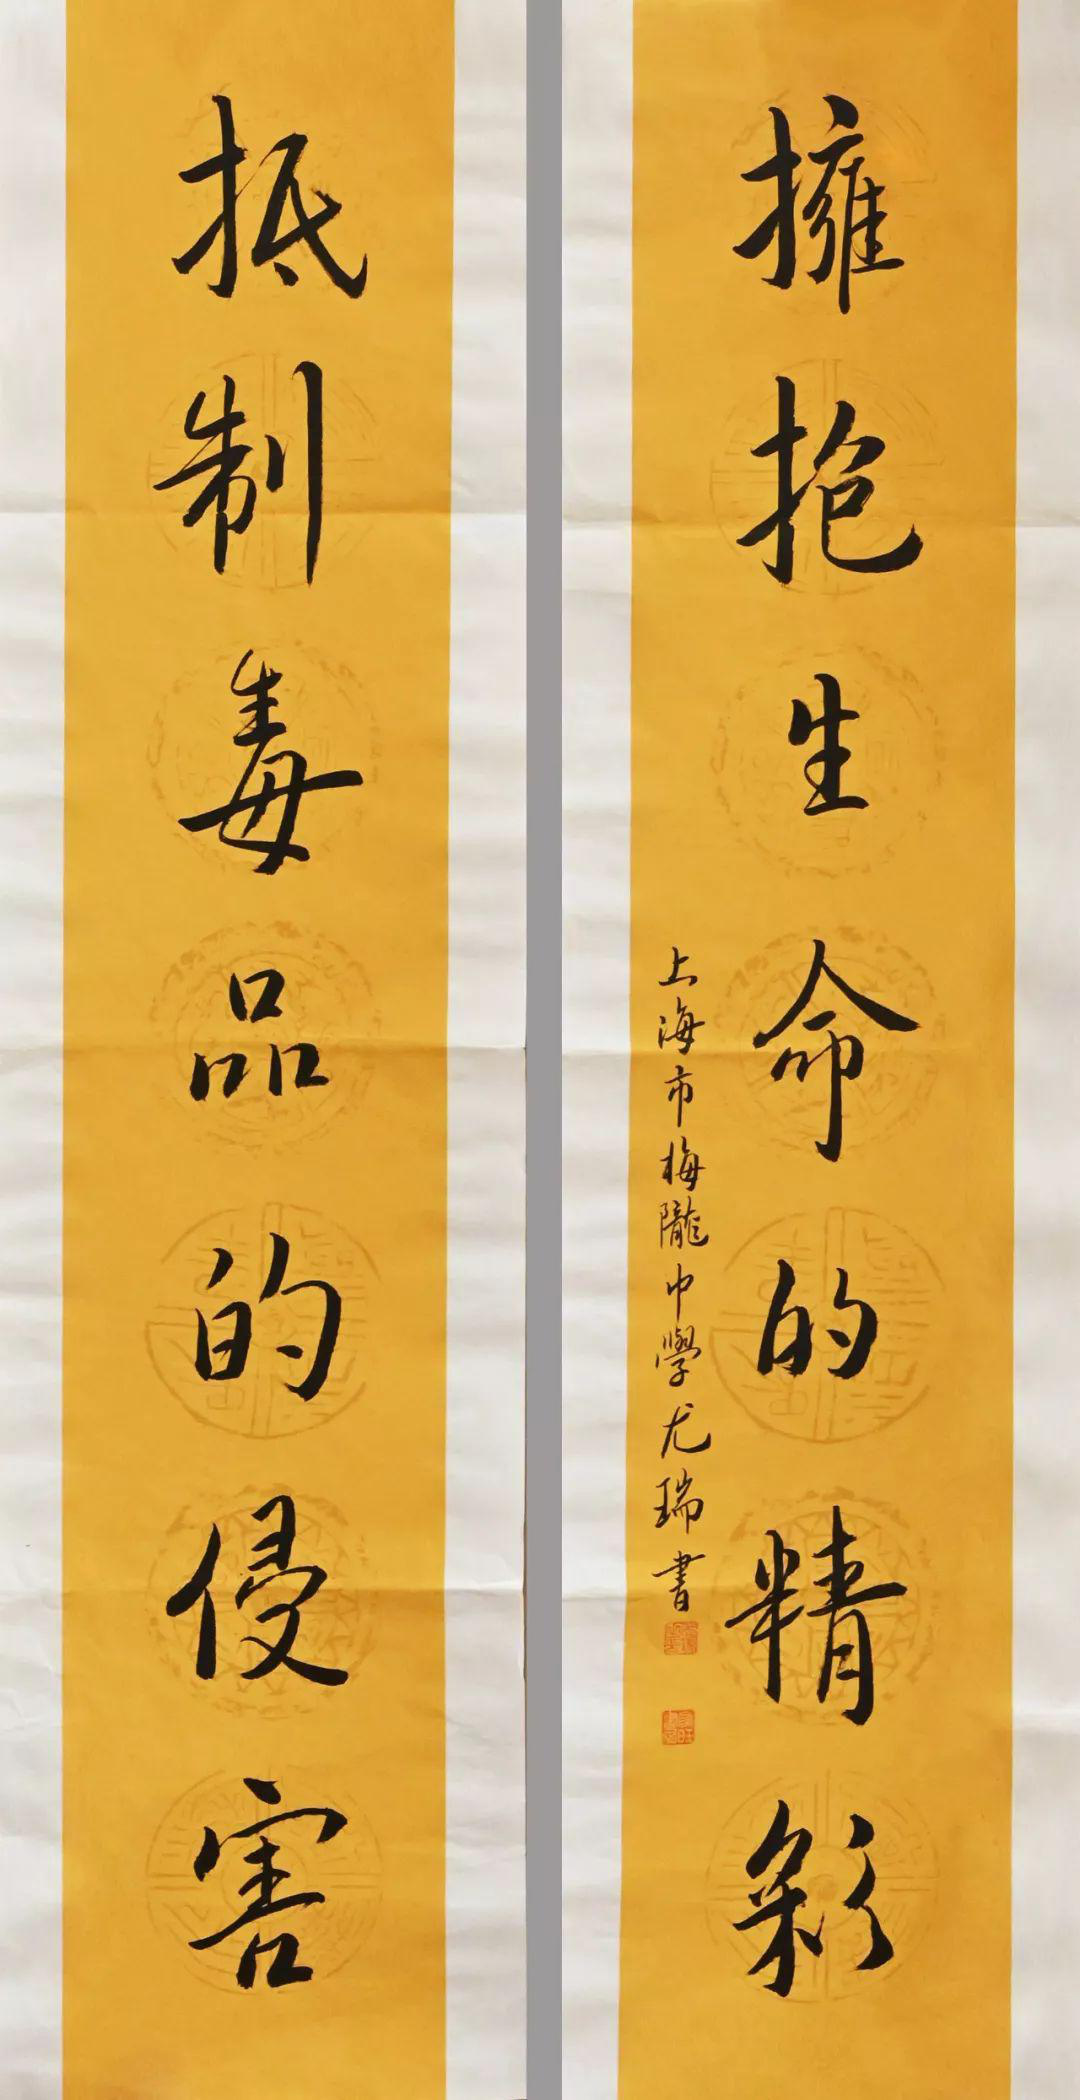 擁抱生命的精彩
上海市梅隴中學尤瑞書
抵制毒品的侵害